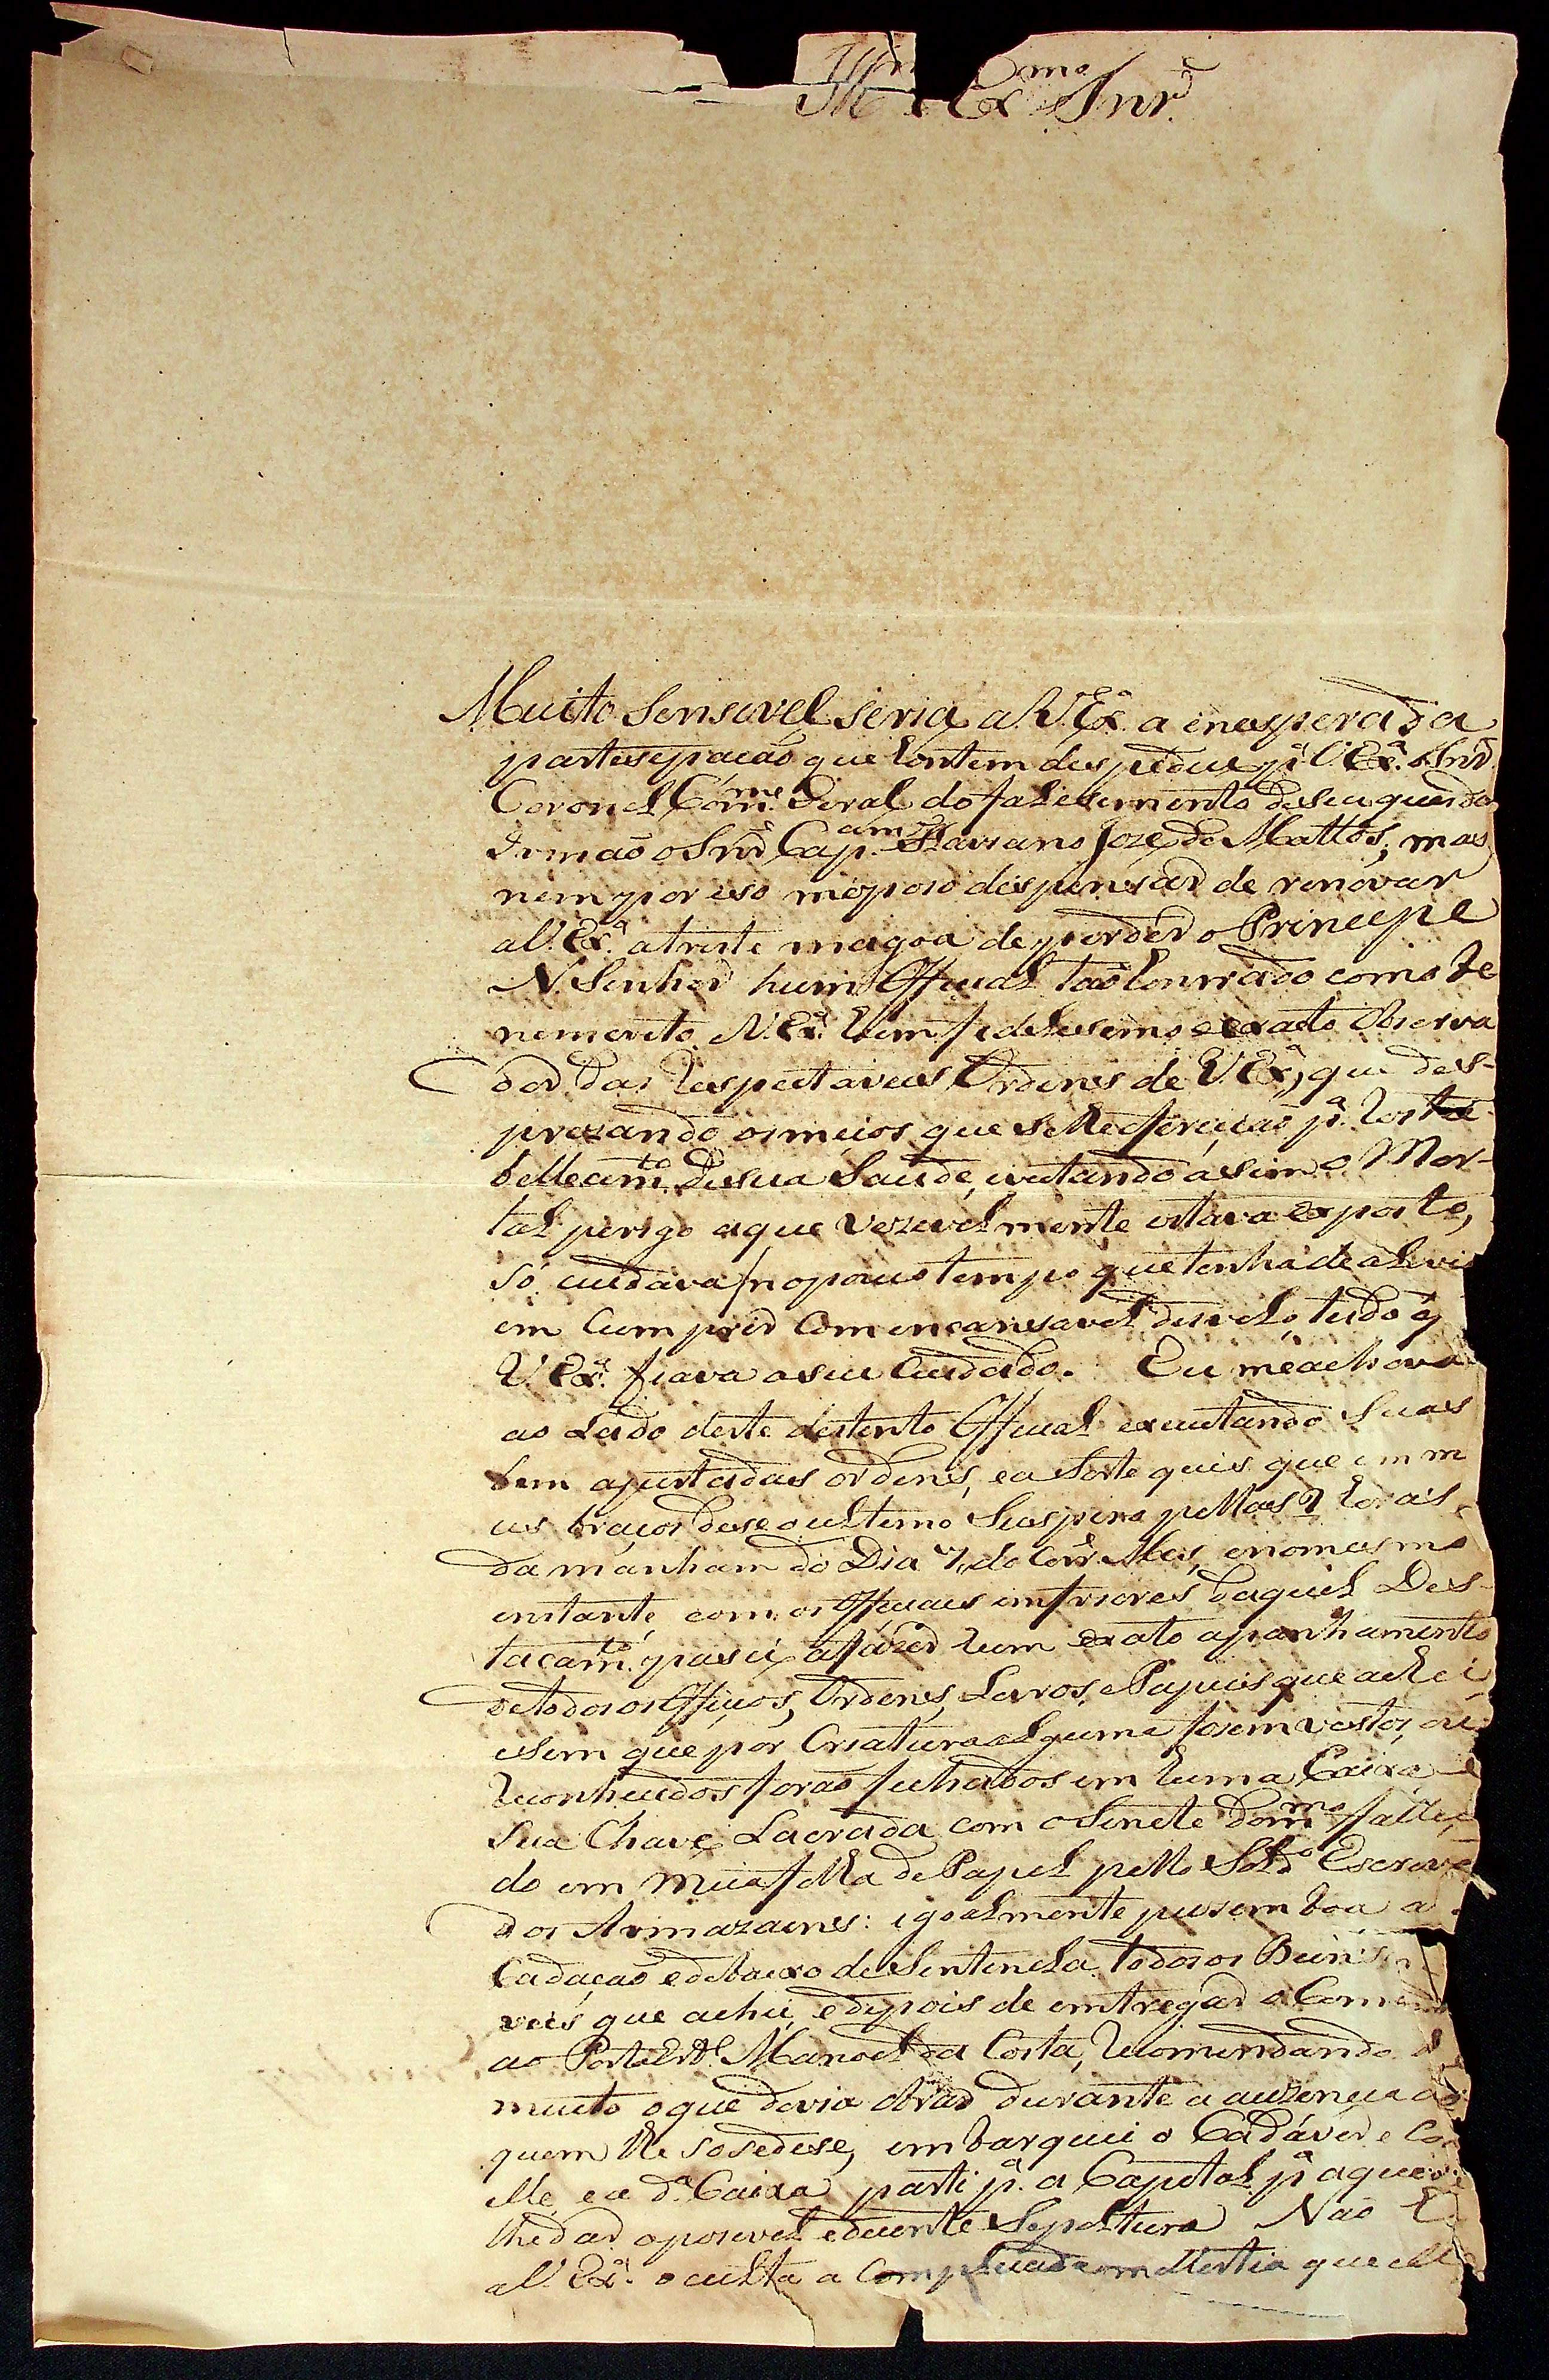 Ill.mo e Ex.mo Snr.
Muito Sensavel seria a V. Ex.ª a enesperada
partesepacaõ que hontem despedio p.ª V. Ex.ª o Snr.
Coronel Com.e Geral do falesemento de seu querido
Irmaõ o Snr. Cap.am Flaviano Joze de Mattos; mas
nem por iso me poso dispensar de renovar
a V. Ex.ª a triste magoa de perder o Principe
N. Senhor hum Official taõ honrrado como be
nemerito. V. Ex.ª hum fidelesimo e exato Observa
dor das Respectaveis Ordens de V. Ex.ª, que des-
prezando os meios que se lhe oferiçiaõ p.ª Resta
bellecim.to de sua Saude, evetando asim o Mor-
tal perigo a que vezevelmente estava exposto,
só cuidava /no pouco tempo que tenha de alivi
em Cumprir Com encansavel desvelo tudo q
V. Ex.ª fiava a seu Cuidado. Eu me achava
ao Lado deste destento Official executando Suas
bem ajustadas ordens, e a Sorte quis que em m
eus braços dese o ultemo Suspiro pellas 2 horas
da manham do Dia 7, do Corr.e Mes, e no mesmo
enstante, com os Officiaes emferiores daquel Des-
tacam.to pasei a fazer hum exato apanhamento
de todos os Officios, Ordens, Levros, e Papeis que achei
e sem que por Criatura alguma fosem vestos, ou
Reconhecidos foraõ fechados em huma Caixa e
Sua Chave Lacrada com o Senete do m.mo falleci
do em meia folha de Papel pello Sold.º Escriva
dos Armazaens: egoalmente pus em boa a
Cadaçaõ e debaixo de Sentenela todos os Beins
veis que achei, e depois de emtregar o Comando
ao Porta Est.e Manoel da Costa, Recomendando
muito o que devia obrar durante a auzencia
quem lhe sosedese, embarquei o Cadáver e Co
elle, e a d.ª Caixa parti p.ª a Capetal p.ª aqui
lhe dar a posevel e decente Sepoltura Naõ
a V. Ex.ª oculta a Complicada mollestia que elle